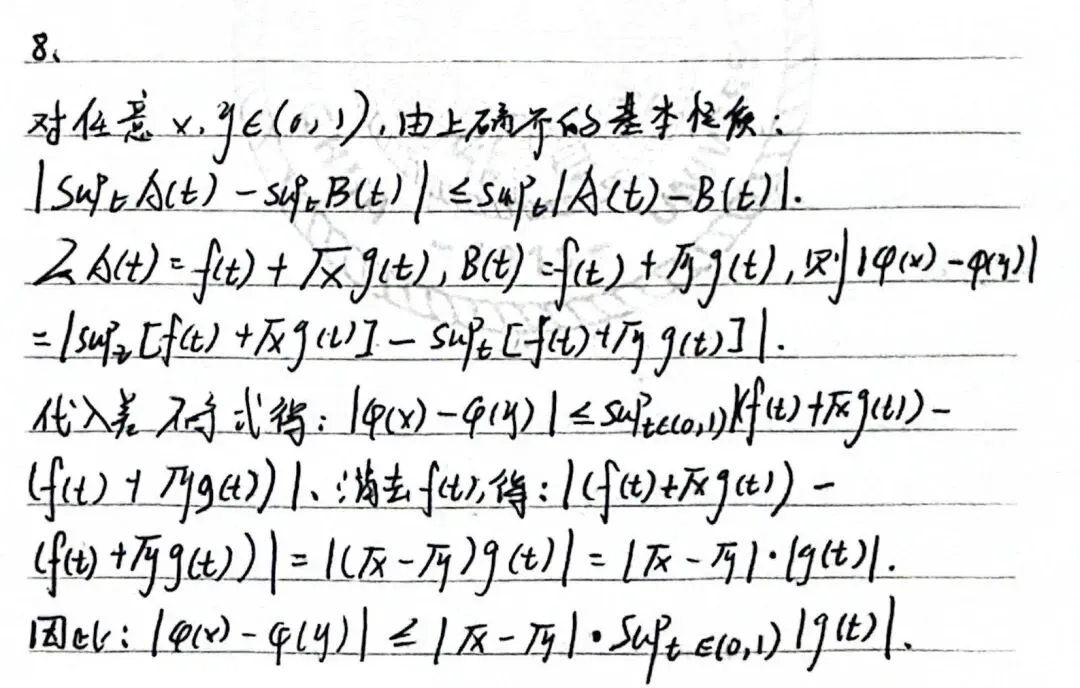 8、
对任意 x, y∈(0,1), 由上确界的基本性质:
|sup_t A(t) - sup_t B(t)| ≤ sup_t |A(t) - B(t)|.
令 A(t) = f(t) + √x g(t), B(t) = f(t) + √y g(t), 则 |φ(x) - φ(y)|
= |sup_t [f(t) + √x g(t)] - sup_t [f(t) + √y g(t)]|.
代入差不等式得: |φ(x) - φ(y)| ≤ sup_{t∈(0,1)} |(f(t) + √x g(t)) -
(f(t) + √y g(t))|、消去 f(t), 得: |(f(t) + √x g(t)) -
(f(t) + √y g(t))| = |(√x - √y) g(t)| = |√x - √y| · |g(t)|.
因此: |φ(x) - φ(y)| ≤ |√x - √y| · sup_{t∈(0,1)} |g(t)|.